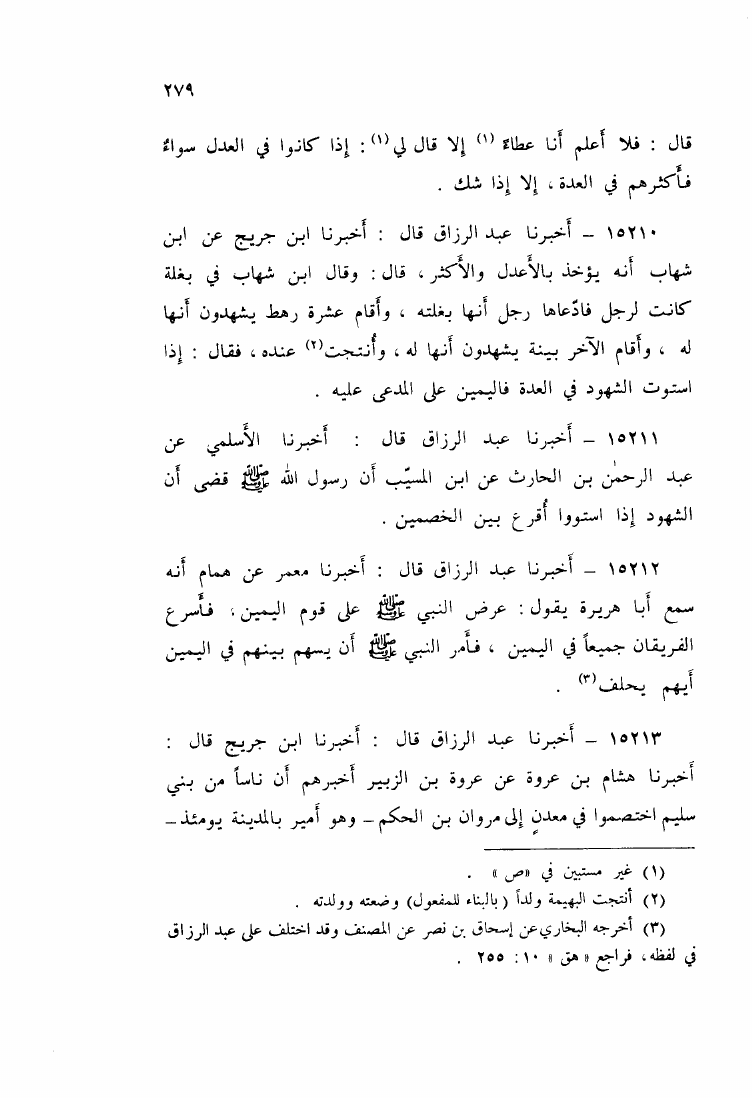 ٢٧٩
قال : فلا أعلم أنا عطاءً (١) إلا قال لي(١) : إذا كانوا في العدل سواءً
فأكثرهم في العدة ، إلا إذا شك .
١٥٢١٠ – أخبرنا عبد الرزاق قال : أخبرنا ابن جريج عن ابن
شهاب أنه يؤخذ بالأعدل والأكثر ، قال : وقال ابن شهاب في بغلة
كانت لرجل فادّعاها رجل أنها بغلته ، وأقام عشرة رهط يشهدون أنها
له ، وأقام الآخر بينة يشهدون أنها له ، وأُنتجت(٢) عنده ، فقال : إذا
استوت الشهود في العدة فاليمين على المدعى عليه .
١٥٢١١ – أخبرنا عبد الرزاق قال : أخبرنا الأسلمي عن
عبد الرحمٰن بن الحارث عن ابن المسيّب أن رسول الله ﷺ قضى أن
الشهود إذا استووا أُقرع بين الخصمين .
١٥٢١٢ – أخبرنا عبد الرزاق قال : أخبرنا معمر عن همام أنه
سمع أبا هريرة يقول : عرض النبي ﷺ على قوم اليمين ، فأسرع
الفريقان جميعاً في اليمين ، فأمر النبي ﷺ أن يسهم بينهم في اليمين
أيهم يحلف(٣) .
١٥٢١٣ – أخبرنا عبد الرزاق قال : أخبرنا ابن جريج قال :
أخبرنا هشام بن عروة عن عروة بن الزبير أخبرهم أن ناساً من بني
سليم اختصموا في معدنٍ إلى مروان بن الحكم – وهو أمير بالمدينة يومئذ –
(١) غير مستبين في «ص» .
(٢) أنتجت البهيمة ولداً (بالبناء للمفعول) وضعته وولدته .
(٣) أخرجه البخاري عن إسحاق بن نصر عن المصنف وقد اختلف على عبد الرزاق
في لفظه ، فراجع «هق» ١٠ : ٢٥٥ .